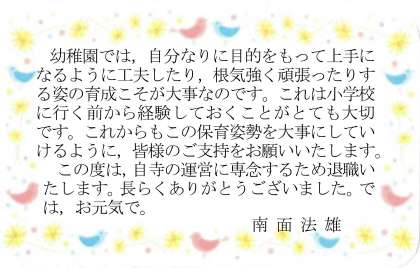 幼稚園では，自分なりに目的をもって上手に
なるように工夫したり，根気強く頑張ったりす
る姿の育成こそが大事なのです。これは小学校
に行く前から経験しておくことがとても大切
です。これからもこの保育姿勢を大事にしてい
けるように，皆様のご支持をお願いいたします。
この度は，自寺の運営に専念するため退職い
たします。長らくありがとうございました。で
は，お元気で。
南面法雄